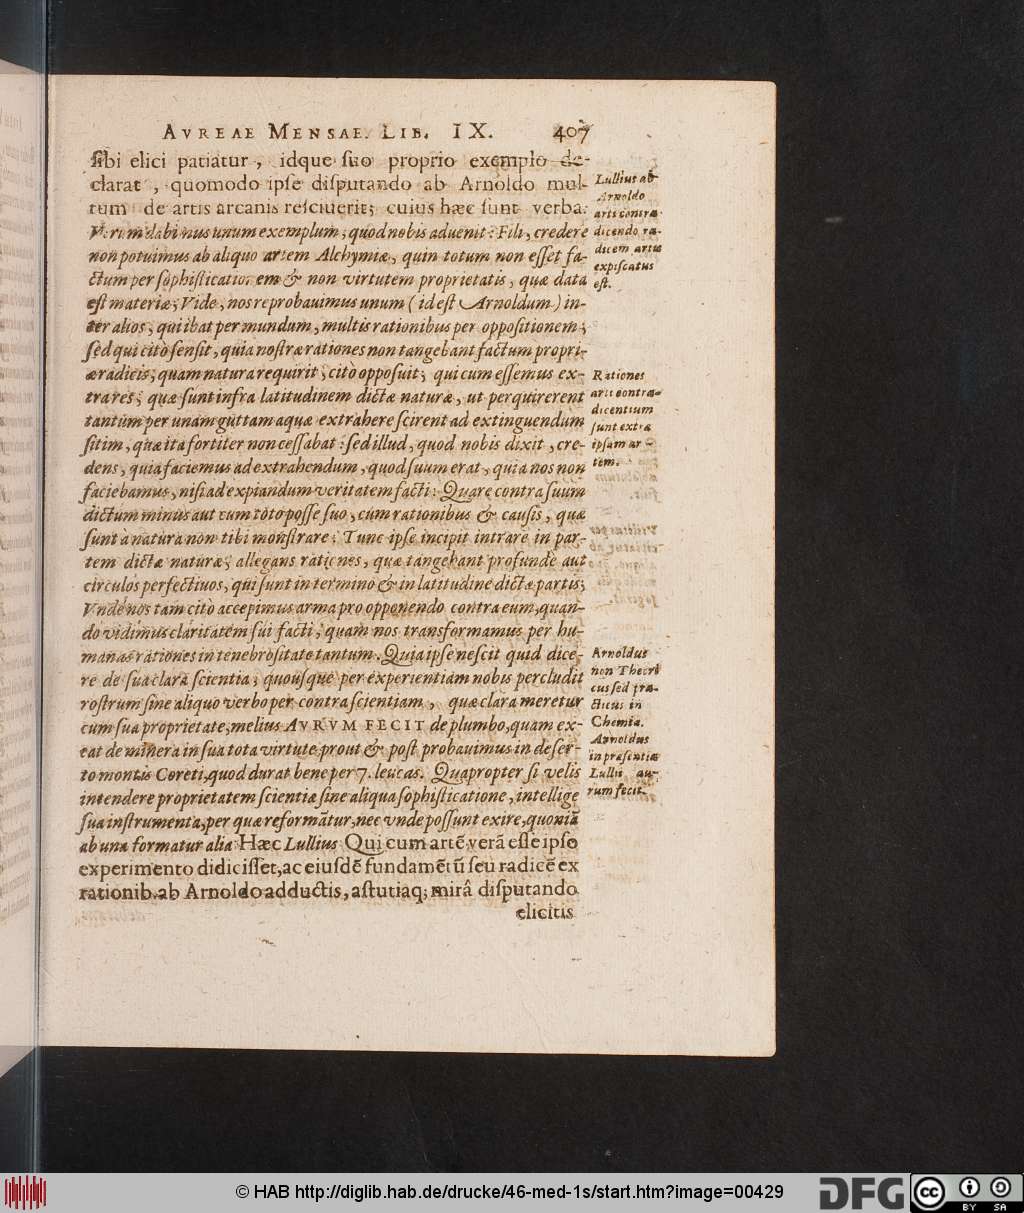 AVREAE MENSAE. LIB. IX. 407
sibi elici patiatur, idque suo proprio exemplo de-
clarat, quomodo ipse disputando ab Arnoldo mul-
tum de artis arcanis resciuerit; cuius hæc sunt verba:
Verum dabimus unum exemplum, quod nobis aduenit: Fili, credere
non potuimus ab aliquo artem Alchymiæ, quin totum non esset fa-
ctum per sophisticationem & non virtutem proprietatis, quæ data
est materiæ; Vide, nos reprobauimus unum (id est Arnoldum) in-
ter alios, qui ibat per mundum, multis rationibus per oppositionem;
sed qui citò sensit, quia nostræ rationes non tangebant factum propri-
æ radicis; quam natura requirit, cito opposuit; qui cum essemus ex-
tra res, quæ sunt infra latitudinem dictæ naturæ, ut perquirerent
tantùm per unam guttam aquæ extrahere scirent ad extinguendum
sitim, quæ ita fortiter non cessabat: sed illud, quod nobis dixit, cre-
dens, quia faciemus ad extrahendum, quod suum erat, quia nos non
faciebamus, nisi ad expiandum veritatem facti: Quare contra suum
dictum minùs aut cum toto posse suo, cum rationibus & causis, quæ
sunt à natura non tibi monstrare; Tunc ipse incipit intrare in par-
tem dictæ naturæ, allegans rationes, quæ tangebant profunde aut
circulos perfectiuos, qui sunt in termino & in latitudine dictæ partis;
Vnde nos tam citò accepimus arma pro opponendo contra eum, quan-
do vidimus claritatem sui facti, quam nos transformamus per hu-
manas rationes in tenebrositate tantum. Quia ipse nescit quid dice-
re de sua clara scientia; quousque per experientiam nobis percludit
rostrum sine aliquo verbo per contra scientiam, quæ clara meretur
cum sua proprietate, melius AVRVM FECIT de plumbo, quam ex-
eat de minera in sua tota virtute prout & post probauimus in deser-
to montis Coreti, quod durat bene per 7. leucas. Quapropter si velis
intendere proprietatem scientiæ sine aliqua sophisticatione, intellige
sua instrumenta, per quæ reformãtur, nec vnde possunt exire, quoniã
ab una formatur alia. Hæc Lullius Qui cum artẽ verã esse ipso
experimento didicisset, ac eiusdẽ fundamẽtũ seu radicẽ ex
rationib. ab Arnoldo adductis, astutiaq; mirâ disputando
elicitis
Lullius ab
Arnoldo
arti contra-
dicendo ra-
dicem artis
expiscatus
est.
Rationes
arti contra-
dicentium
sunt extra
ipsam ar-
tem.
Arnoldus
non Theori
cus sed pra-
cticus in
Chemia.
Arnoldus
in præsentia
Lullii au-
rum fecit.
© HAB http://diglib.hab.de/drucke/46-med-1s/start.htm?image=00429
DFG
cc
BY SA